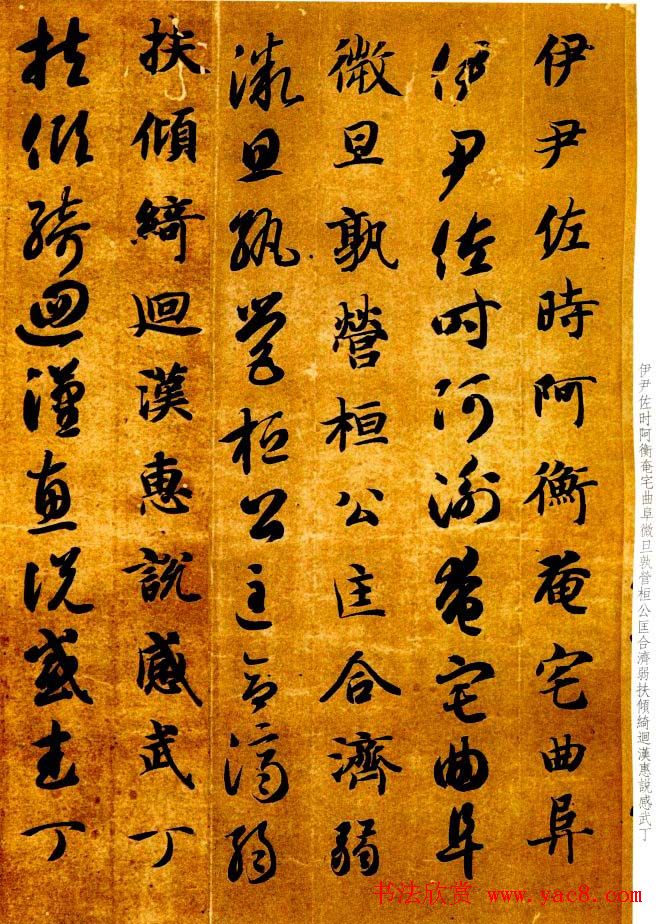 伊尹佐时阿衡奄宅曲阜微旦孰营桓公匡合濟弱扶傾綺迴漢惠説感武丁
伊尹佐時阿衡奄宅曲阜
伊尹佐時阿衡奄宅曲阜
微旦孰營桓公匡合濟弱
微旦孰營桓公匡合濟弱
扶傾綺迴漢惠說感武丁
扶傾綺迴漢惠說感武丁
书法欣赏 www.yac8.com